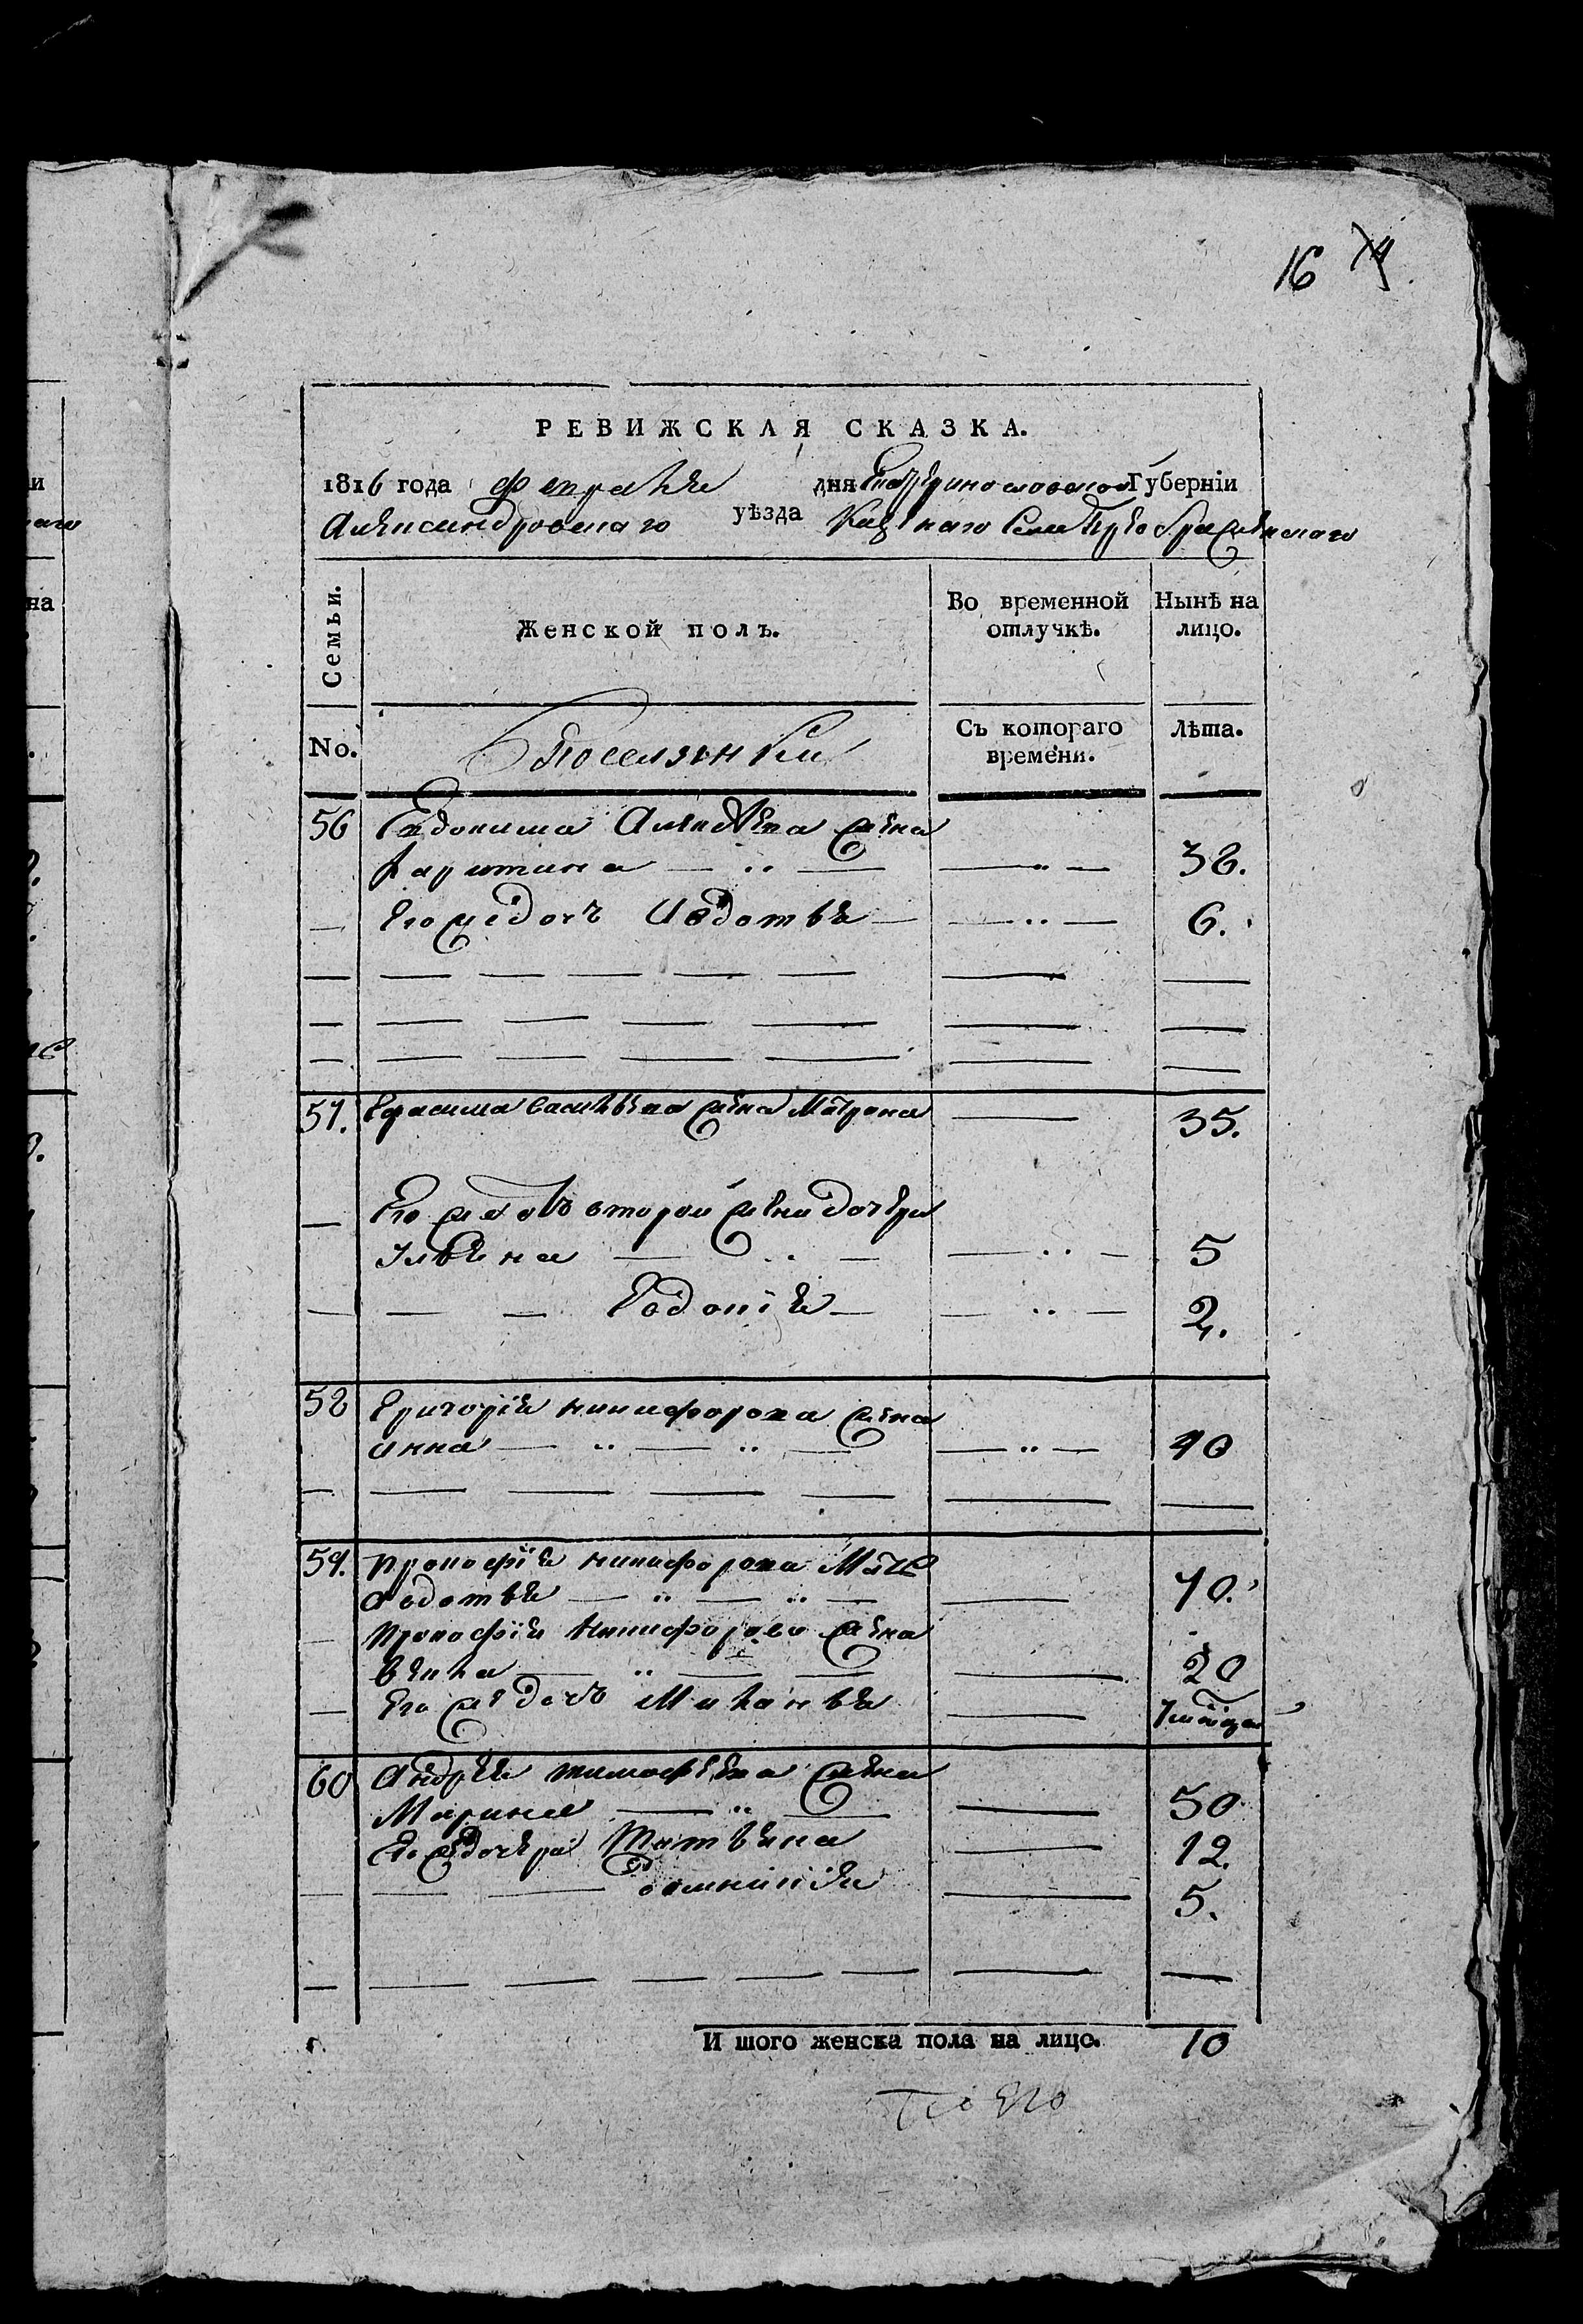 16
РЕВИЖСКАЯ СКАЗКА.
1816 года февраля дня Екатеринославской Губерніи
Александровскаго уѣзда Казеннаго Села Преображенскаго
Семьи.
Женской полъ.
Во временной
отлучкѣ.
Нынѣ на
лицо.
No.
Поселянки
Съ котораго
времени.
Лѣта.
56 Евдокима Алексѣева жена
Харитина 38.
Его же дочь Авдотья 6.
57. Герасима Васильева жена Матрона 35.
Его же отъ второй жены дочери
Ульяна 5
Евдокія 2.
58 Григорія Никифорова жена
Анна 40
59. Прокофія Никифорова Мать
Авдотья 70.
Прокофія Никифорова жена
20
Его же дочь
60 Андрея Тимофѣева жена
Марина 50
Его же дочери Татьяна 12.
5.
И того женска пола на лицо. 10